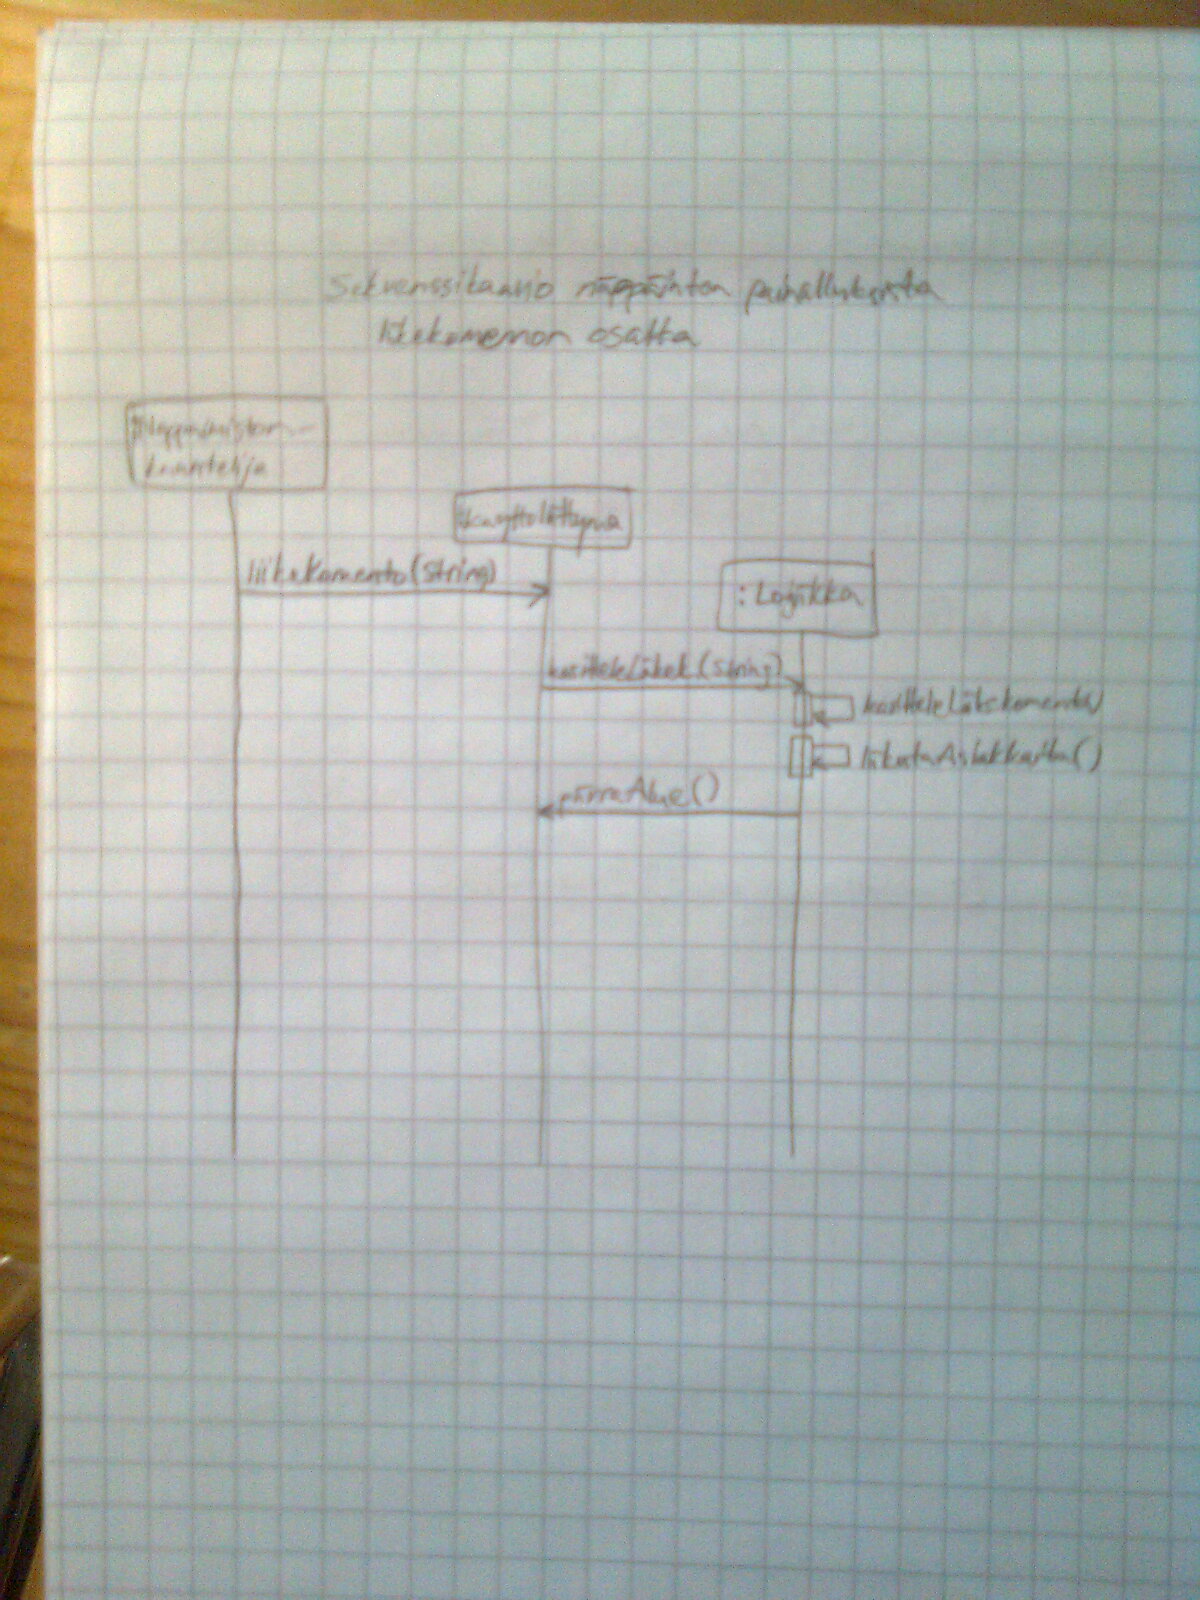 Sekvenssikaavio näppäinten painalluksista
liikekomennon osalta
:Näppäimistön-
kuuntelija
:Käyttöliittymä
liikeKomento(String)
:Logiikka
kasitteleLiike(String)
kasitteleLiikekomento()
liikutaAsiakkaita()
piirraAlue()